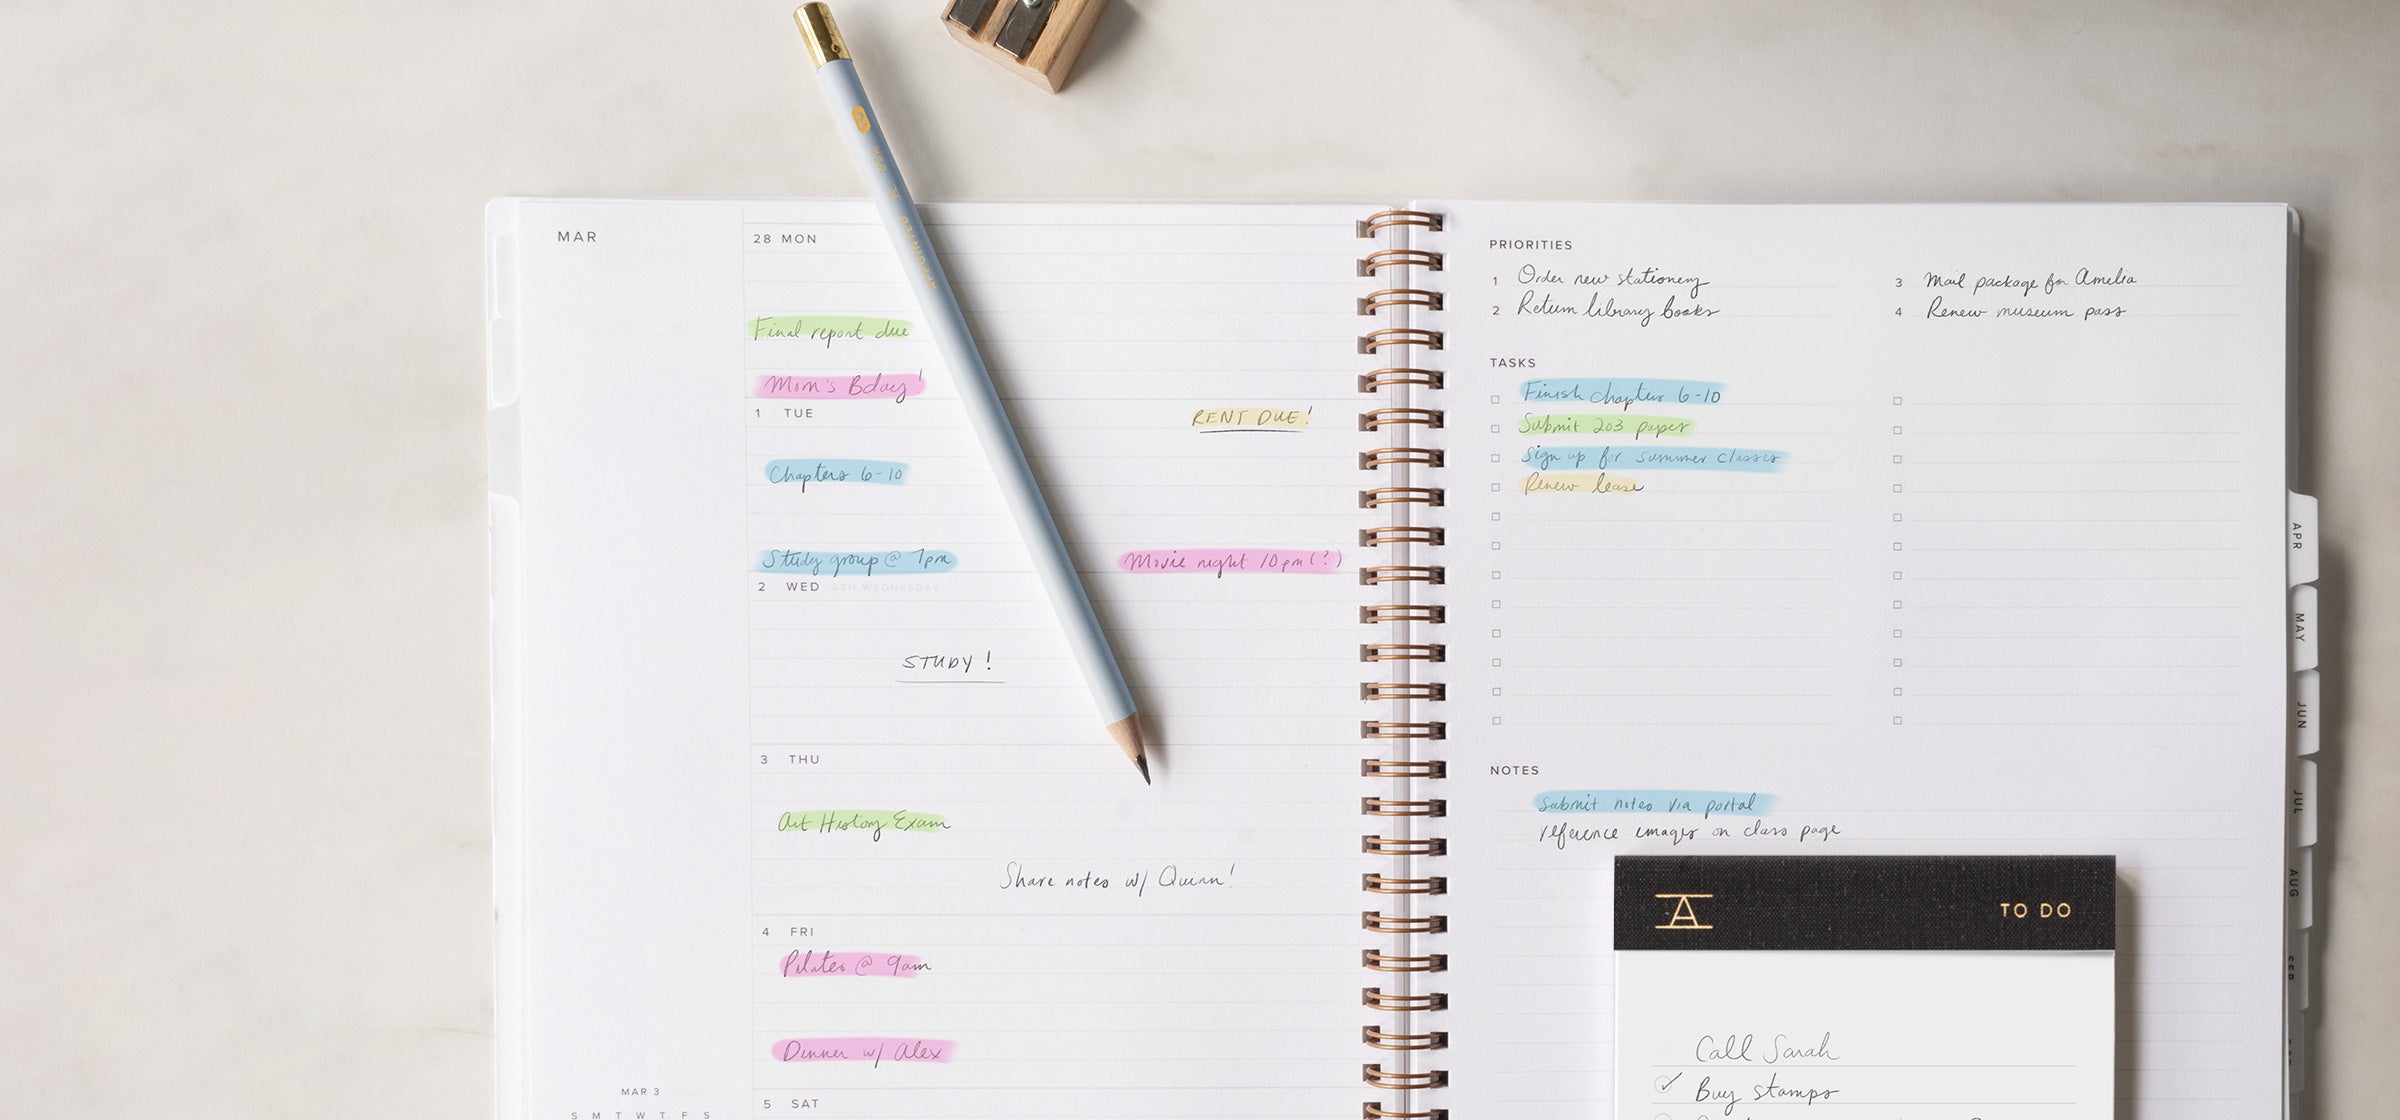 2 USA APPOINTED
MAR
28 MON
Final report due
Mom's Bday!
1 TUE
RENT DUE!
Chapters 6-10
Study group @ 7pm
Movie night 10pm(?)
2 WED ASH WEDNESDAY
STUDY!
3 THU
Art History Exam
Share notes w/ Quinn!
4 FRI
Pilates @ 9am
Dinner w/ Alex
5 SAT
MAR 3
S M T W T F S
PRIORITIES
1 Order new stationery
2 Return library books
3 Mail package for Amelia
4 Renew museum pass
TASKS
Finish chapters 6-10
Submit 203 paper
Sign up for summer classes
Renew lease
NOTES
Submit notes via portal
reference images on class page
A TO DO
Call Sarah
Buy stamps
APR
MAY
JUN
JUL
AUG
SEP